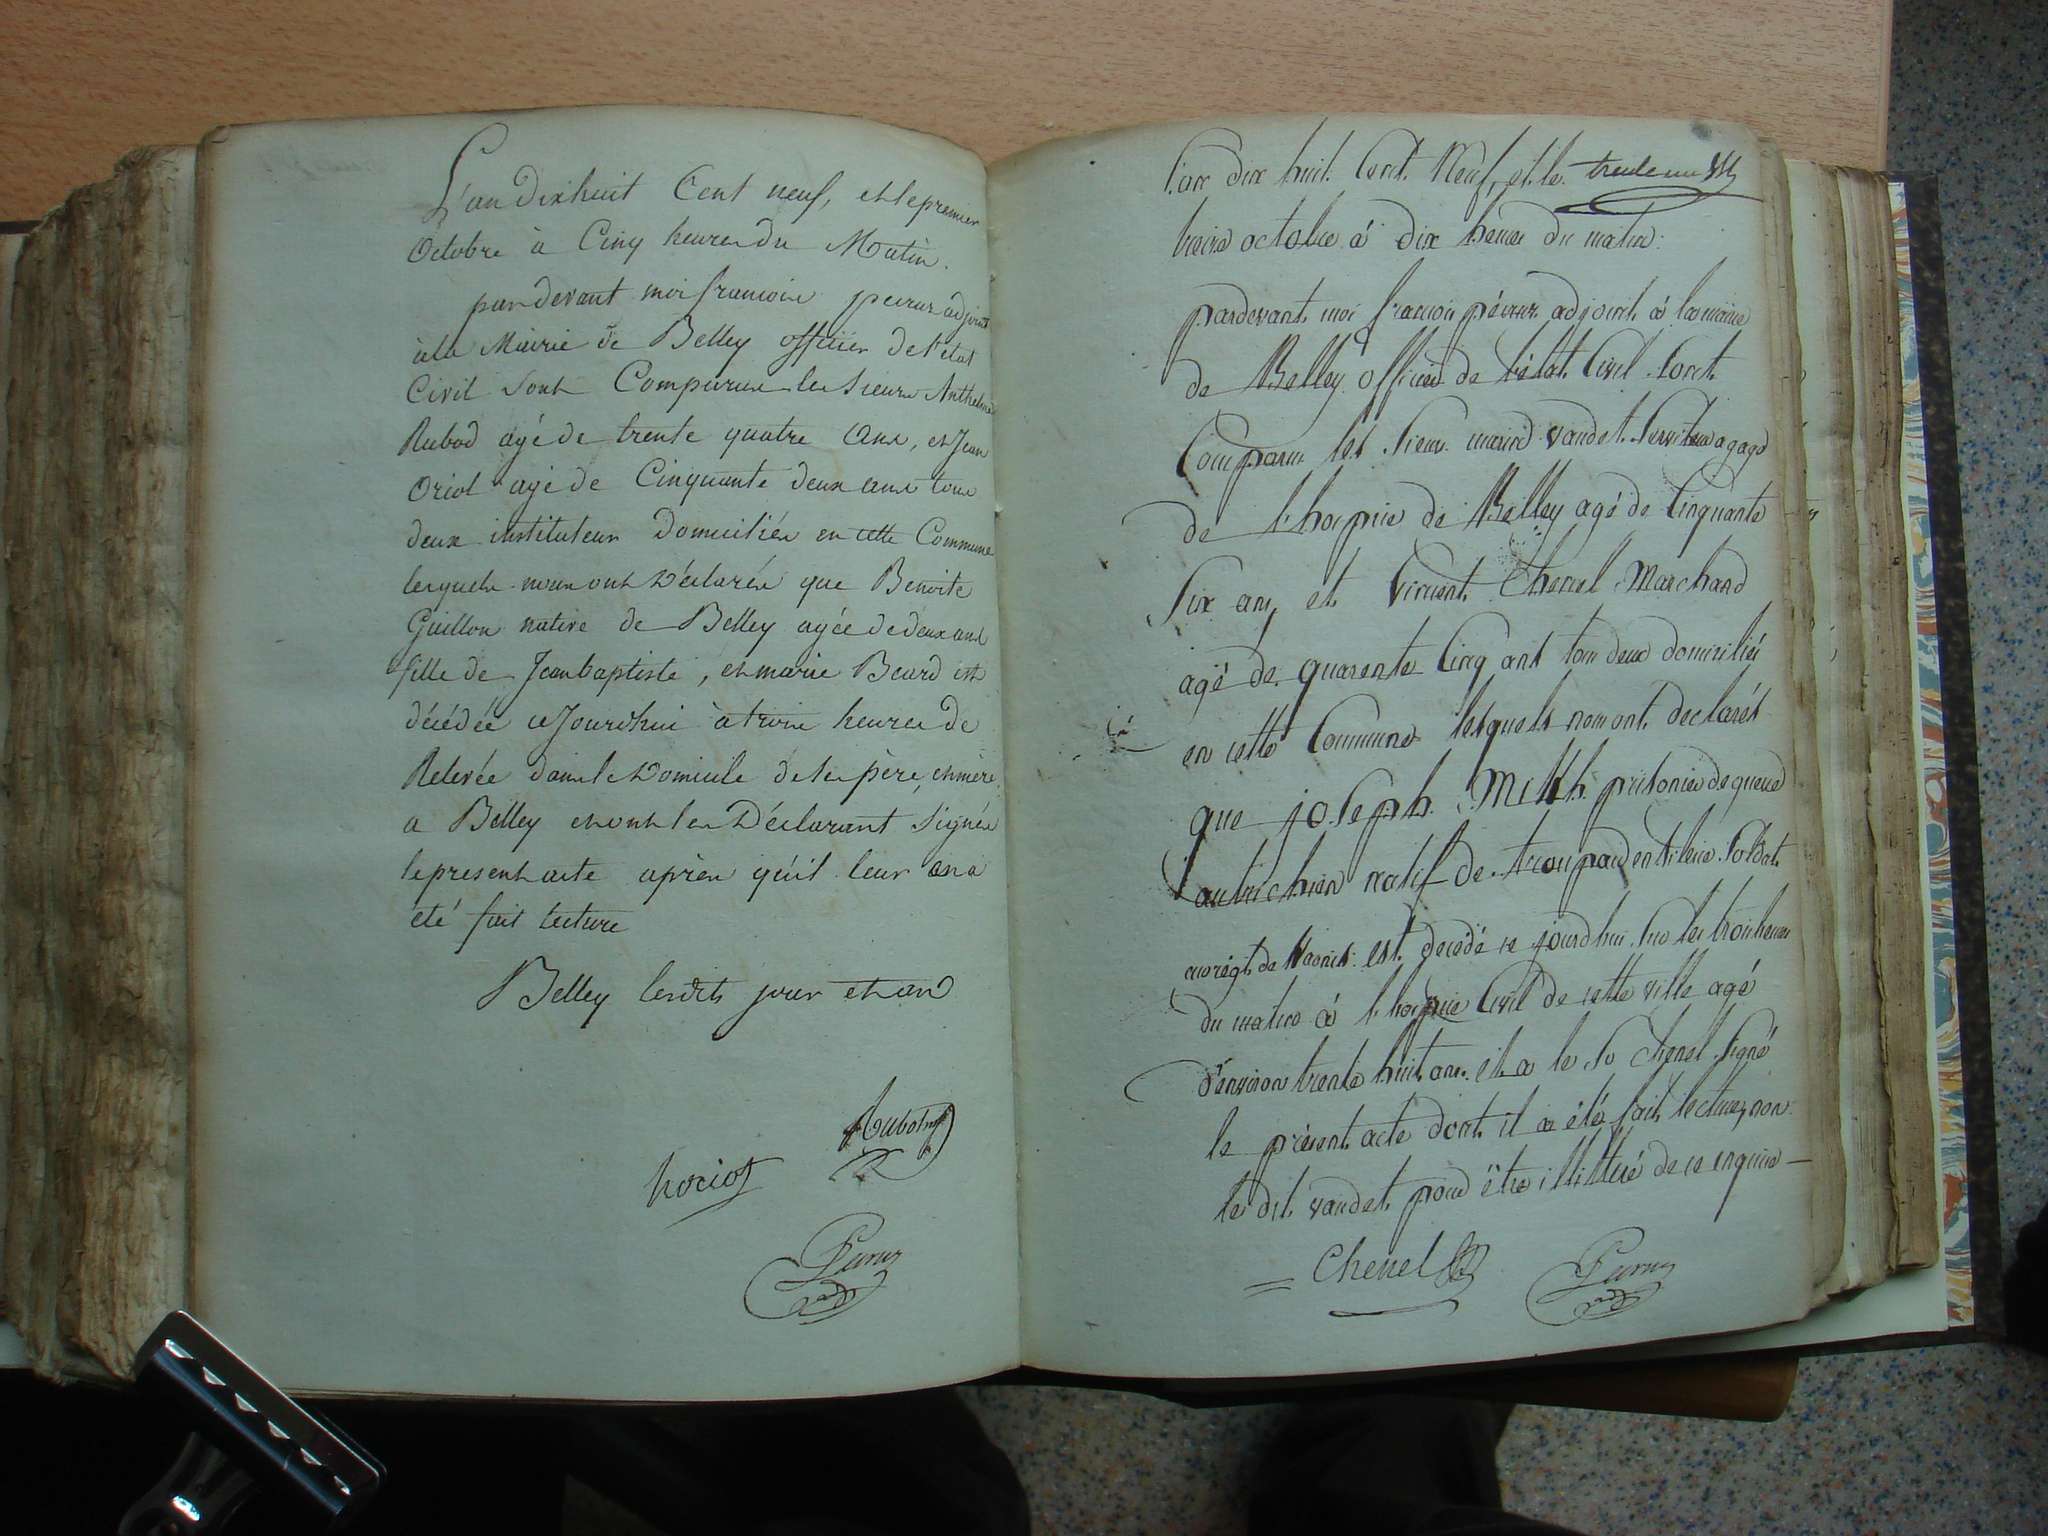 L'an Dixhuit Cent neuf, et le premier
Octobre à Cinq heures du Matin.
pardevant moi francois peirus adjoint
à la Mairie de Belley officier de l'état
Civil sont Comparus les sieurs Anthelme
Rubod agé de trente quatre ans, et Jean
Oriol agé de Cinquante deux ans tous
deux instituteurs Domiciliés en cette Commune
lesquels nous ont Déclarés que Benoite
Guillon native de Belley agée de deux ans
fille de Jean baptiste, et marie Beard est
décédée ce Jourdhui à trois heures de
Relevée dans le Domicile de ses père, et mère
a Belley et ont les Déclarant Signés
le present acte après qu'il leur en a
été fait lecture
Belley lesdits jour et an
Rubod
horiol
Peirus
L'an dix huit Cent Neuf, et le trente un
treize octobre à dix heures du matin
pardevant moi francois péirus adjoint à la mairie
de Belley officier de l'état Civil sont
Comparus les sieurs marin vaudet serviteur a gage
de l'hospice de Belley agé de Cinquante
Six ans, et Vincent Chenel Marchand
agé de quarente Cinq ans tous deux domiciliés
en cette Commune lesquels nous ont declarés
que joseph prisonier de guerre
autrichien natif de soldat
au régt. de est decédé ce jourdhui sur les trois heures
du matin à l'hospice Civil de cette ville agé
d'environ trente huit ans et a le Sr Chenel Signé
le présent acte dont il a été fait lecture, non
le dit vaudet pour être illitteré de ce enquis
Chenel
Peirus